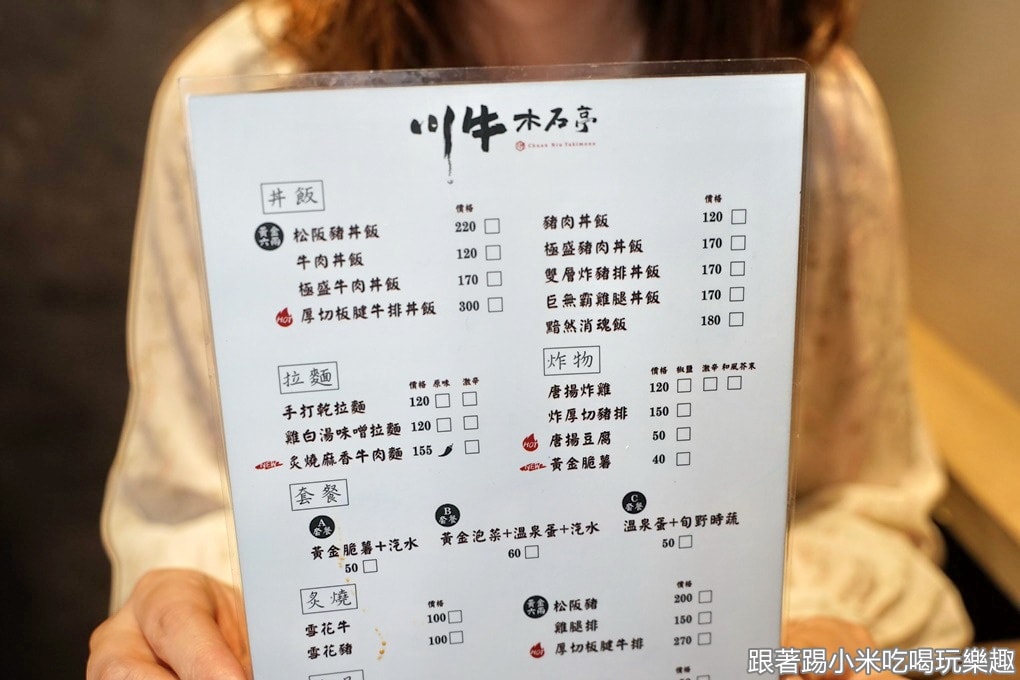 川牛 木石亭
Chuan Niu Yakimono
丼飯
價格
黃金六兩 松阪豬丼飯 220
牛肉丼飯 120
極盛牛肉丼飯 170
HOT 厚切板腱牛排丼飯 300
價格
豬肉丼飯 120
極盛豬肉丼飯 170
雙層炸豬排丼飯 170
巨無霸雞腿丼飯 170
黯然消魂飯 180
拉麵
價格 原味 激辛
手打乾拉麵 120
雞白湯味噌拉麵 120
NEW 炙燒麻香牛肉麵 155
炸物
價格 椒鹽 激辛 和風芥末
唐揚炸雞 120
炸厚切豬排 150
HOT 唐揚豆腐 50
NEW 黃金脆薯 40
套餐
A 套餐
黃金脆薯+汽水
50
B 套餐
黃金泡菜+溫泉蛋+汽水
60
C 套餐
溫泉蛋+旬野時蔬
50
炙燒
價格
雪花牛 100
雪花豬 100
價格
黃金六兩 松阪豬 200
雞腿排 150
HOT 厚切板腱牛排 270
價格
跟著踢小米吃喝玩樂趣